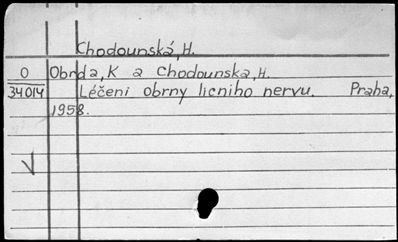 Chodounská, H.
O Obrda, K a Chodounska, H.
34014 Léčeni obrny licniho nervu. Praha,
1958.